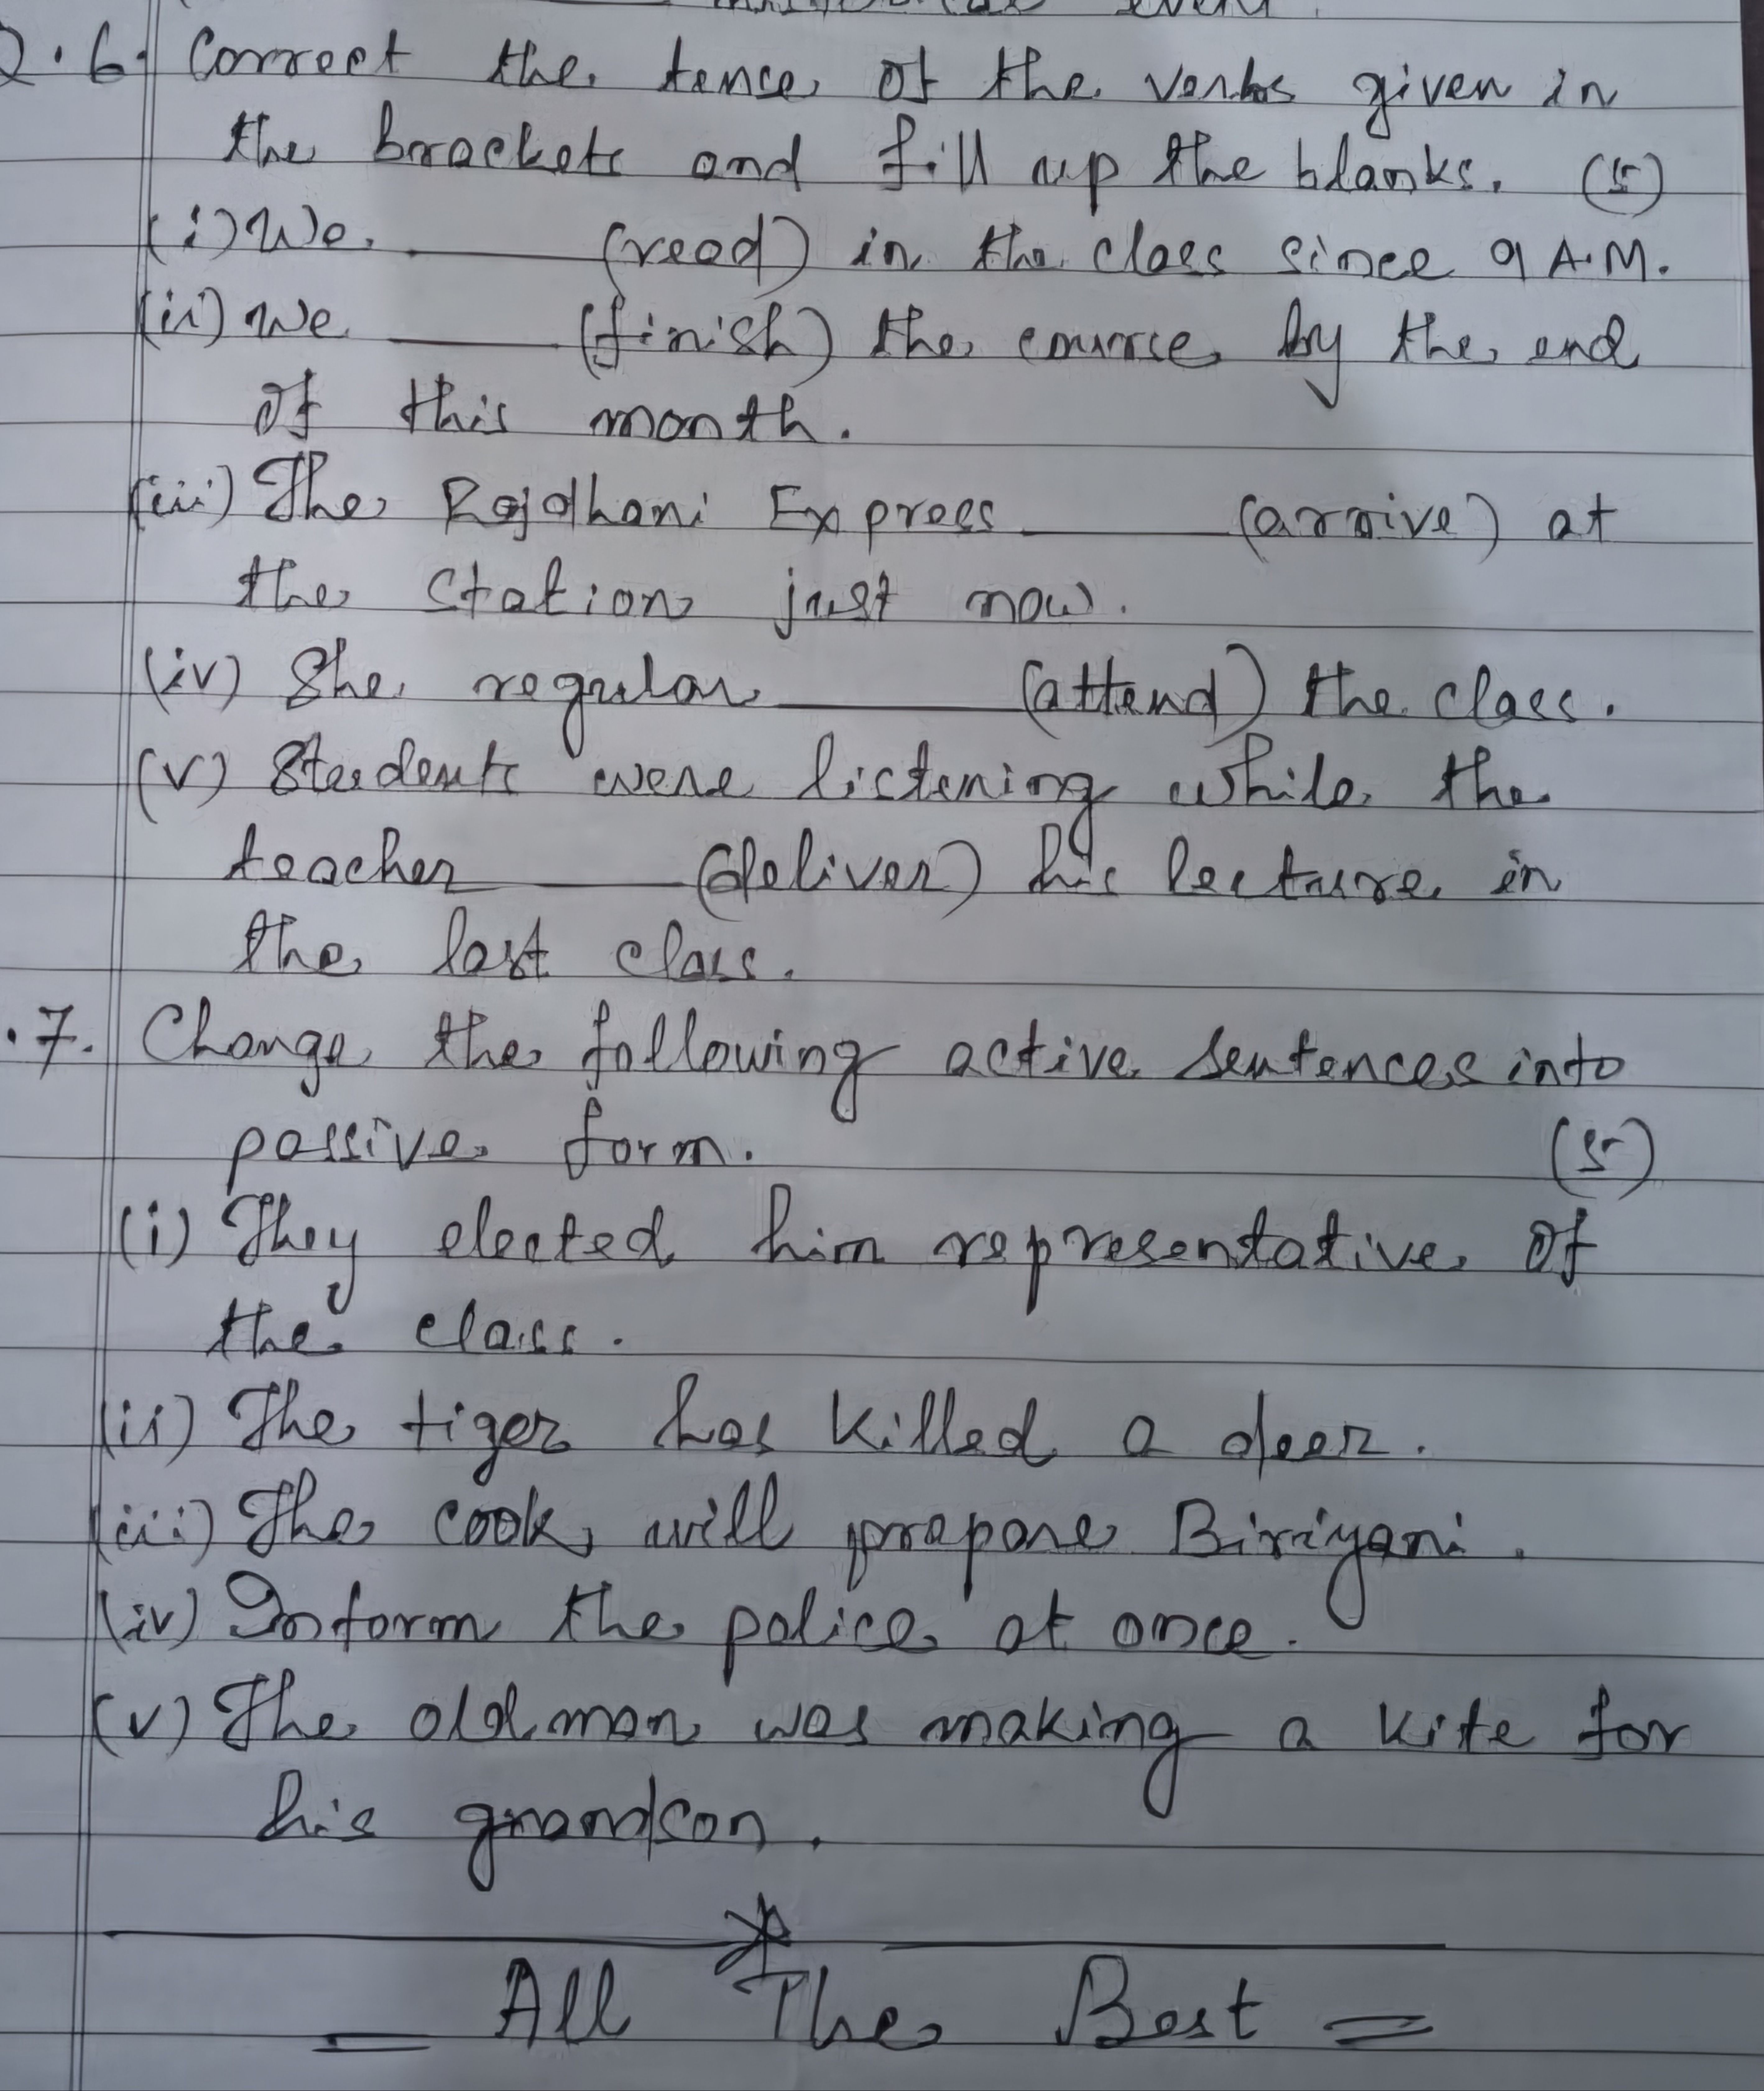 Q.6. Correct the tence of the verbs given in
the brackets and fill up the blanks. (5)
(i) We ______ (read) in the class since 9 A.M.
(ii) We ______ (finish) the course by the end
of this month.
(iii) The Rajdhani Express ______ (arrive) at
the station just now.
(iv) She regular ______ (attend) the class.
(v) Students were listening while the
teacher ______ (deliver) his lecture in
the last class.
.7. Change the following active sentences into
passive form. (5)
(i) They elected him representative of
the class.
(ii) The tiger has killed a deer.
(iii) The cook will prepare Biriyani.
(iv) Inform the police at once.
(v) The old man was making a kite for
his grandson.
All The Best